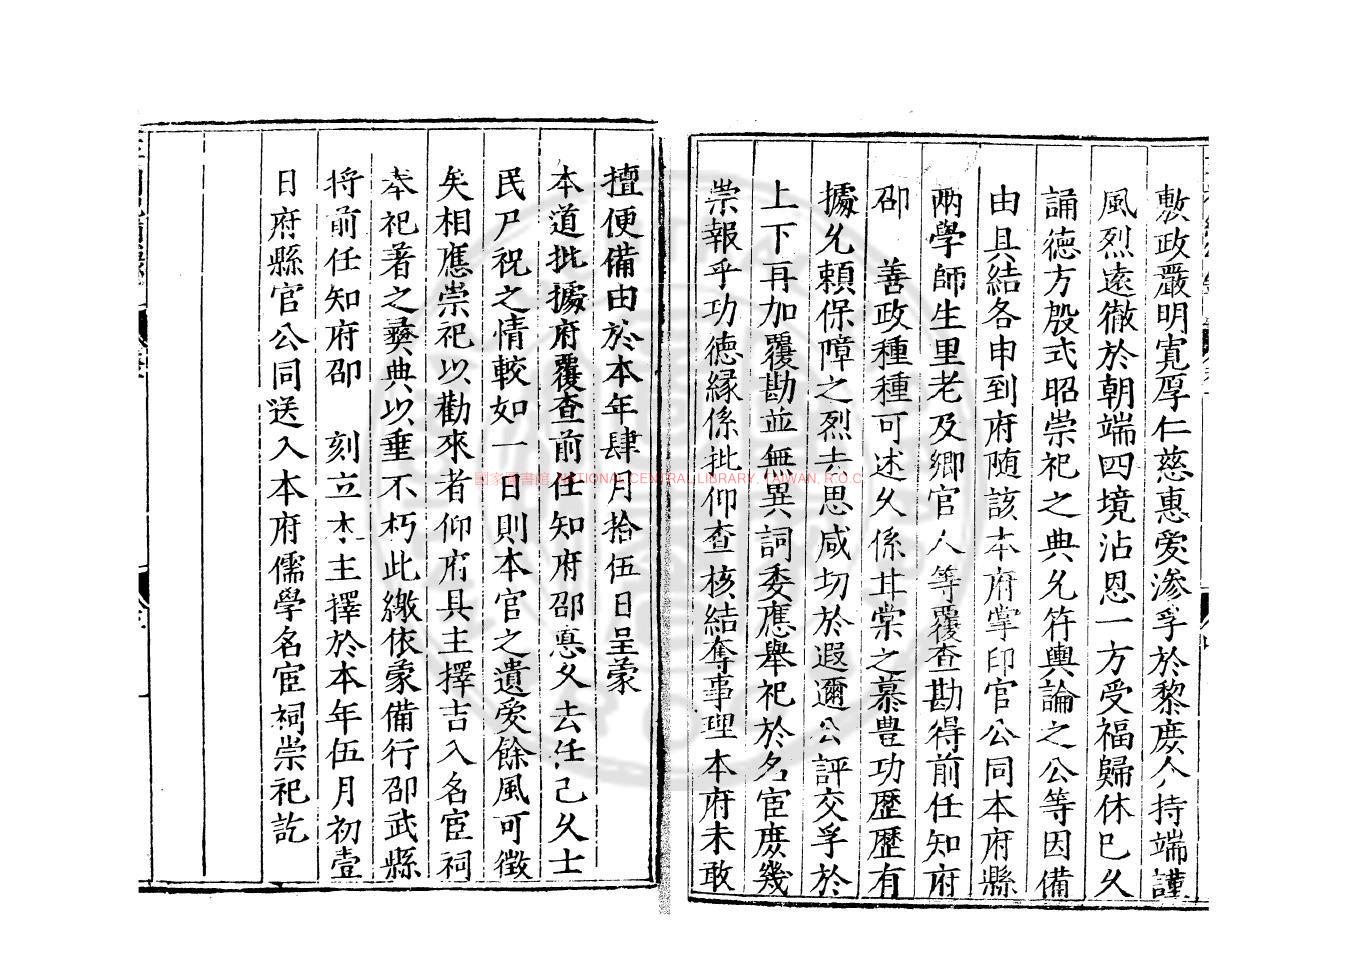 敷政嚴明寬厚仁慈惠愛滲孚於黎庶人持端謹
風烈遠徹於朝端四境沾恩一方受福歸休巳久
誦德方殷式昭崇祀之典允符輿論之公等因備
由具結各申到府随該本府掌印官公同本府縣
兩學師生里老及鄉官人等覆查勘得前任知府
邵 善政種種可述久係甘棠之慕豊功歷歷有
據允賴保障之烈去思咸切於遐邇公評交孚於
上下再加覆勘並無異詞委應舉祀於名宦庶幾
崇報乎功德緣係批仰查核結奪事理本府未敢
擅便備由於本年肆月拾伍日呈蒙
本道批據府覆查前任知府邵 久去任己久士
民尸祝之情較如一日則本官之遺愛餘風可徵
矣相應崇祀以勸來者仰府具主擇吉入名宦祠
奉祀著之彝典以垂不朽此繳依蒙備行邵武縣
將前任知府邵 刻立木主擇於本年伍月初壹
日府縣官公同送入本府儒學名宦祠崇祀訖
國家圖書館 NATIONAL CENTRAL LIBRARY, TAIWAN, R.O.C